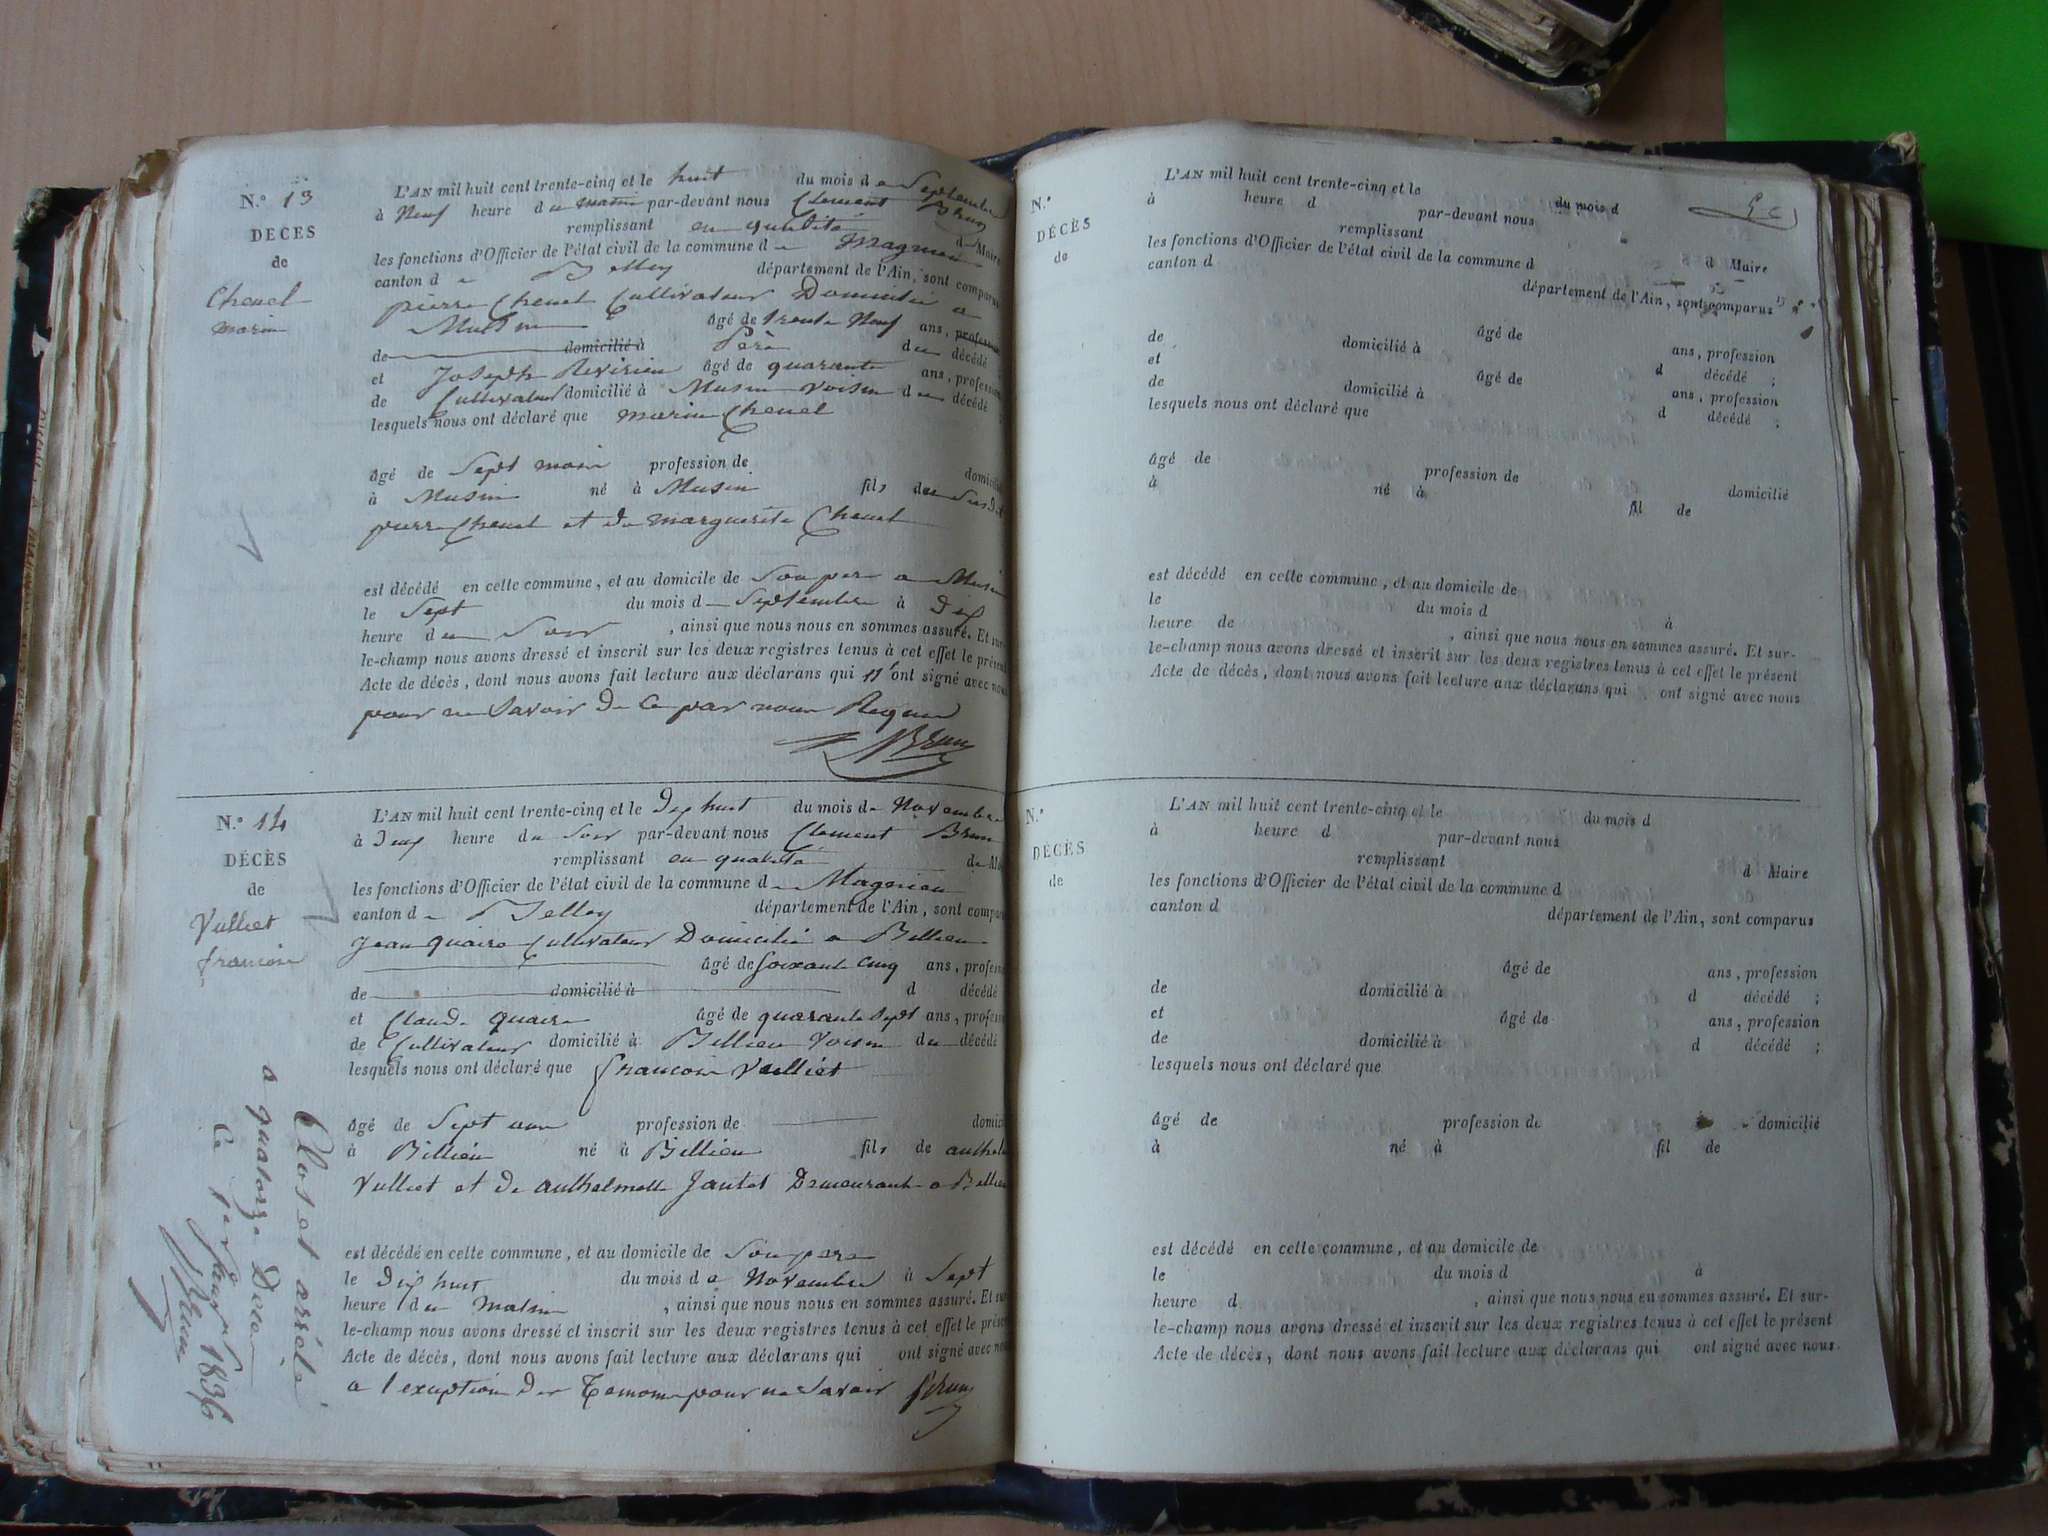 N.° 13
DÉCÈS
de
Chenel
marin
L'AN mil huit cent trente-cinq et le huit du mois de Septembre
à Neuf heure du matin par-devant nous Clement Brun
remplissant en qualité d Maire
les fonctions d'Officier de l'état civil de la commune de Magnieu
canton de Belley département de l'Ain, sont comparus
pierre Chenel Cultivateur Domicilié a
Musin âgé de trente Neuf ans, profession
de domicilié à Père du décédé
et Joseph âgé de quarante ans, profession
de Cultivateur domicilié à Musin voisin du décédé
lesquels nous ont déclaré que marin Chenel
âgé de Sept mois profession de domicilié
à Musin né à Musin fils du Susdit
pierre Chenel et de marguerite Chenel
est décédé en cette commune, et au domicile de Son pere a Musin
le Sept du mois de Septembre à Dix
heure du Soir, ainsi que nous nous en sommes assuré. Et sur-
le-champ nous avons dressé et inscrit sur les deux registres tenus à cet effet le présent
Acte de décès, dont nous avons fait lecture aux déclarans qui n'ont signé avec nous
pour ne Savoir De Ce par nous Requis
Brun
N.° 14
DÉCÈS
de
Vulliet
francois
L'AN mil huit cent trente-cinq et le Dix huit du mois de Novembre
à Deux heure du Soir par-devant nous Clement Brun
remplissant en qualité de Ma
les fonctions d'Officier de l'état civil de la commune de Magnieu
canton de Belley département de l'Ain, sont comparus
Jean quaire Cultivateur Domicilié a Billieu
âgé de Soixante cinq ans, profess
de domicilié à d décédé
et Claude quaire âgé de quarante Sept ans, profess
de Cultivateur domicilié à Billieu Voisin du décédé
lesquels nous ont déclaré que francois Vulliet
âgé de Sept ans profession de domici
à Billieu né à Billieu fils de anthelm
Vulliet et de anthelmette Jantet Demeurant a Billieu
est décédé en cette commune, et au domicile de Son pere
le Dix huit du mois de Novembre à Sept
heure du Matin, ainsi que nous nous en sommes assuré. Et sur
le-champ nous avons dressé et inscrit sur les deux registres tenus à cet effet le prése
Acte de décès, dont nous avons fait lecture aux déclarans qui ont signé avec nous
a l'exception Des Temoins pour ne Savoir Brun
Clos et arrêté
a quatorze Décès
Ce 1er Janvier 1836
Brun
N.°
DÉCÈS
de
L'AN mil huit cent trente-cinq et le du mois d
à heure d par-devant nous
remplissant d Maire
les fonctions d'Officier de l'état civil de la commune d
canton d département de l'Ain, sont comparus
âgé de ans, profession
de domicilié à d décédé ;
et âgé de ans, profession
de domicilié à d décédé ;
lesquels nous ont déclaré que
âgé de profession de domicilié
à né à fil de
est décédé en cette commune, et au domicile de
le du mois d à
heure de , ainsi que nous nous en sommes assuré. Et sur-
le-champ nous avons dressé et inscrit sur les deux registres tenus à cet effet le présent
Acte de décès, dont nous avons fait lecture aux déclarans qui ont signé avec nous
N.°
DÉCÈS
de
L'AN mil huit cent trente-cinq et le du mois d
à heure d par-devant nous
remplissant d Maire
les fonctions d'Officier de l'état civil de la commune d
canton d département de l'Ain, sont comparus
âgé de ans, profession
de domicilié à d décédé ;
et âgé de ans, profession
de domicilié à d décédé ;
lesquels nous ont déclaré que
âgé de profession de domicilié
à né à fil de
est décédé en cette commune, et au domicile de
le du mois d à
heure d , ainsi que nous nous en sommes assuré. Et sur-
le-champ nous avons dressé et inscrit sur les deux registres tenus à cet effet le présent
Acte de décès, dont nous avons fait lecture aux déclarans qui ont signé avec nous.